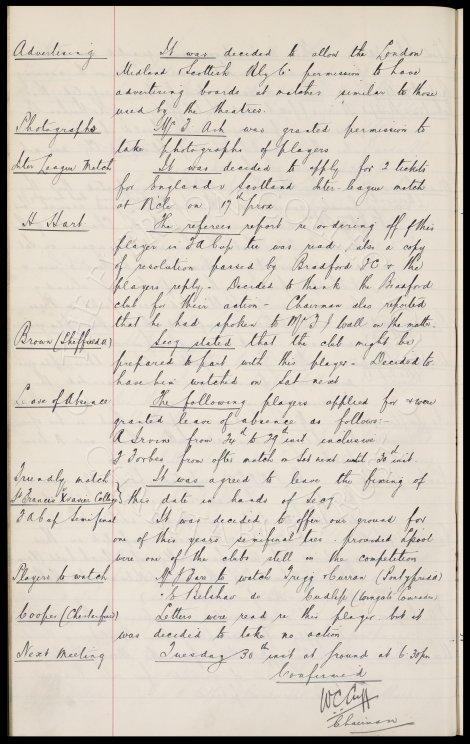 Advertising It was decided to allow the London
Midland & Scottish Rly Co permission to have
advertising boards at matches similar to those
used by the theatres.
Photographs Mr J Ash was granted permission to
take photographs of players
Inter League Match It was decided to apply for 2 tickets
for England v Scotland Inter-league match
at N'cle on 17th prox
H Hart The referees report re ordering off of this
player in FA Cup tie was read, also a copy
of resolution passed by Bradford FC & the
players reply. Decided to thank the Bradford
club for their action - Chairman also reported
that he had spoken to Mr F J Wall on the matter.
Brown (Sheffield U) Secy stated that the club might be
prepared to part with this player. Decided to
have him watched on Sat next
Leave of Absence The following players applied for & were
granted leave of absence as follows:-
A Irvin from 24th to 29th inst inclusive
J Forbes from after match on Sat next until 30th inst.
Friendly match It was agreed to leave the fixing of
St Francis Xavier College } this date in hands of Secy
FA Cup Semi final It was decided to offer our ground for
one of this years semifinal ties. provided Lpool
were one of the clubs still in the competition
Players to watch Mr to watch Gregg & Curran (Pontypridd)
" do Cudlip (Wingate Comrades)
Cooper (Chesterfield) Letters were read re this player but it
was decided to take no action
Next Meeting Tuesday 30th inst at ground at 6.30pm
Confirmed
W C Cuff
Chairman